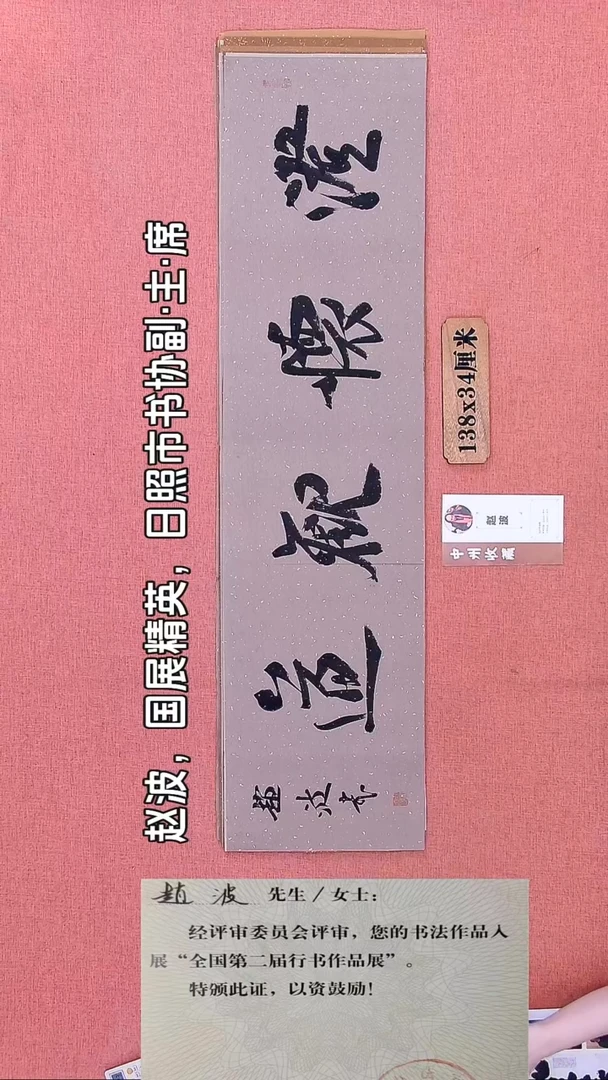 赵波，国展精英，日照市书协副·主·席
澄懷觀道
趙波书
138x34厘米
赵波
中州收藏
趙波 先生/女士：
经评审委员会评审，您的书法作品入
展“全国第二届行书作品展”。
特颁此证，以资鼓励！